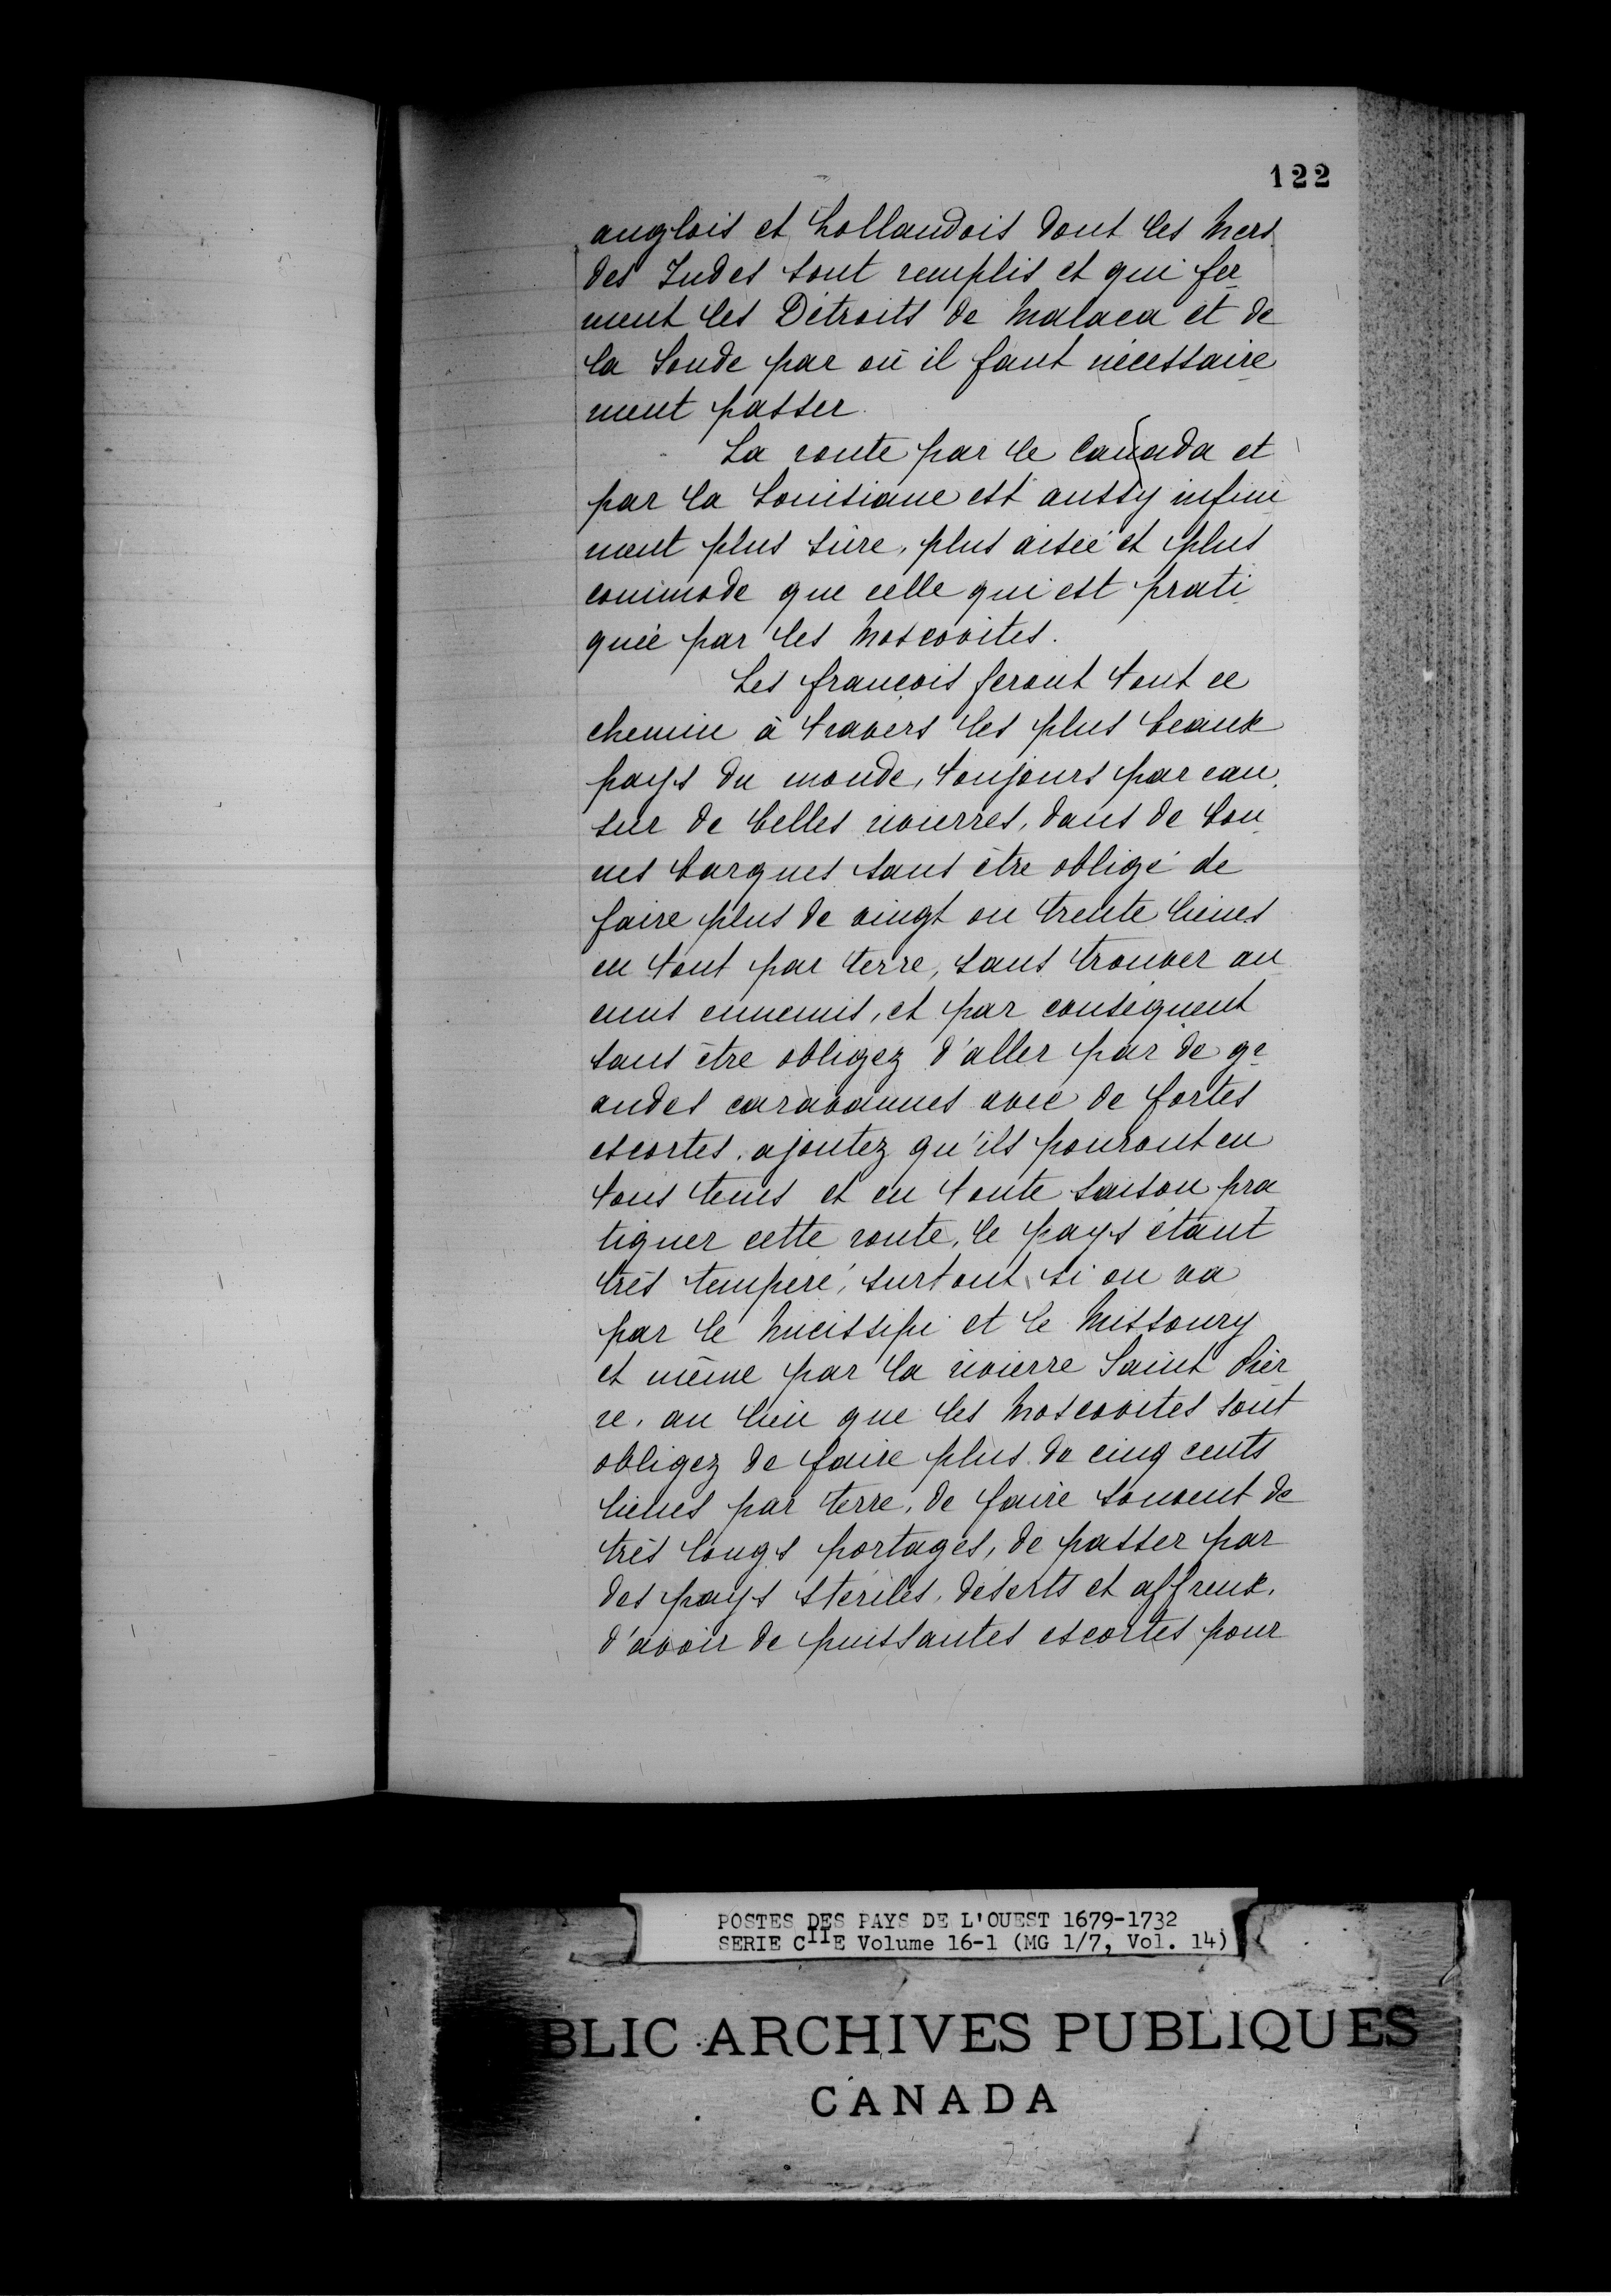 122
anglois et hollandois dont les Mers
des Indes sont remplis et qui fer
ment les Détroits de Malaca et de
la Sonde par où il faut nécessaire
ment passer.
La route par le Canada et
par la Louisiane est aussy infini
ment plus sûre, plus aisée et plus
commode que celle qui est prati
quée par les Moscovites.
Les françois feront tout ce
chemin à travers les plus beaux
pays du monde, toujours par eau,
sur de belles rivierres, dans de bon
nes barques sans être obligé de
faire plus de vingt ou trente lieues
en tout par terre, sans trouver au
cuns ennemis, et par conséquent
sans être obligez d'aller par de gr
andes caravannes avec de fortes
escortes. ajoutez qu'ils pouront en
tous tems et en toute saison pra
tiquer cette route, le pays étant
très temperé, surtout si on va
par le Micissipi et le Missoury
et même par la rivierre Saint Pier
re, au lieu que les Moscovites sont
obligez de faire plus de cinq cents
lieues par terre, de faire souvent de
très longs portages, de passer par
des pays stériles, déserts et affreux,
d'avoir de puissantes escortes pour
POSTES DES PAYS DE L'OUEST 1679-1732
SERIE CIIE Volume 16-1 (MG 1/7, Vol. 14)
BLIC ARCHIVES PUBLIQUES
CANADA